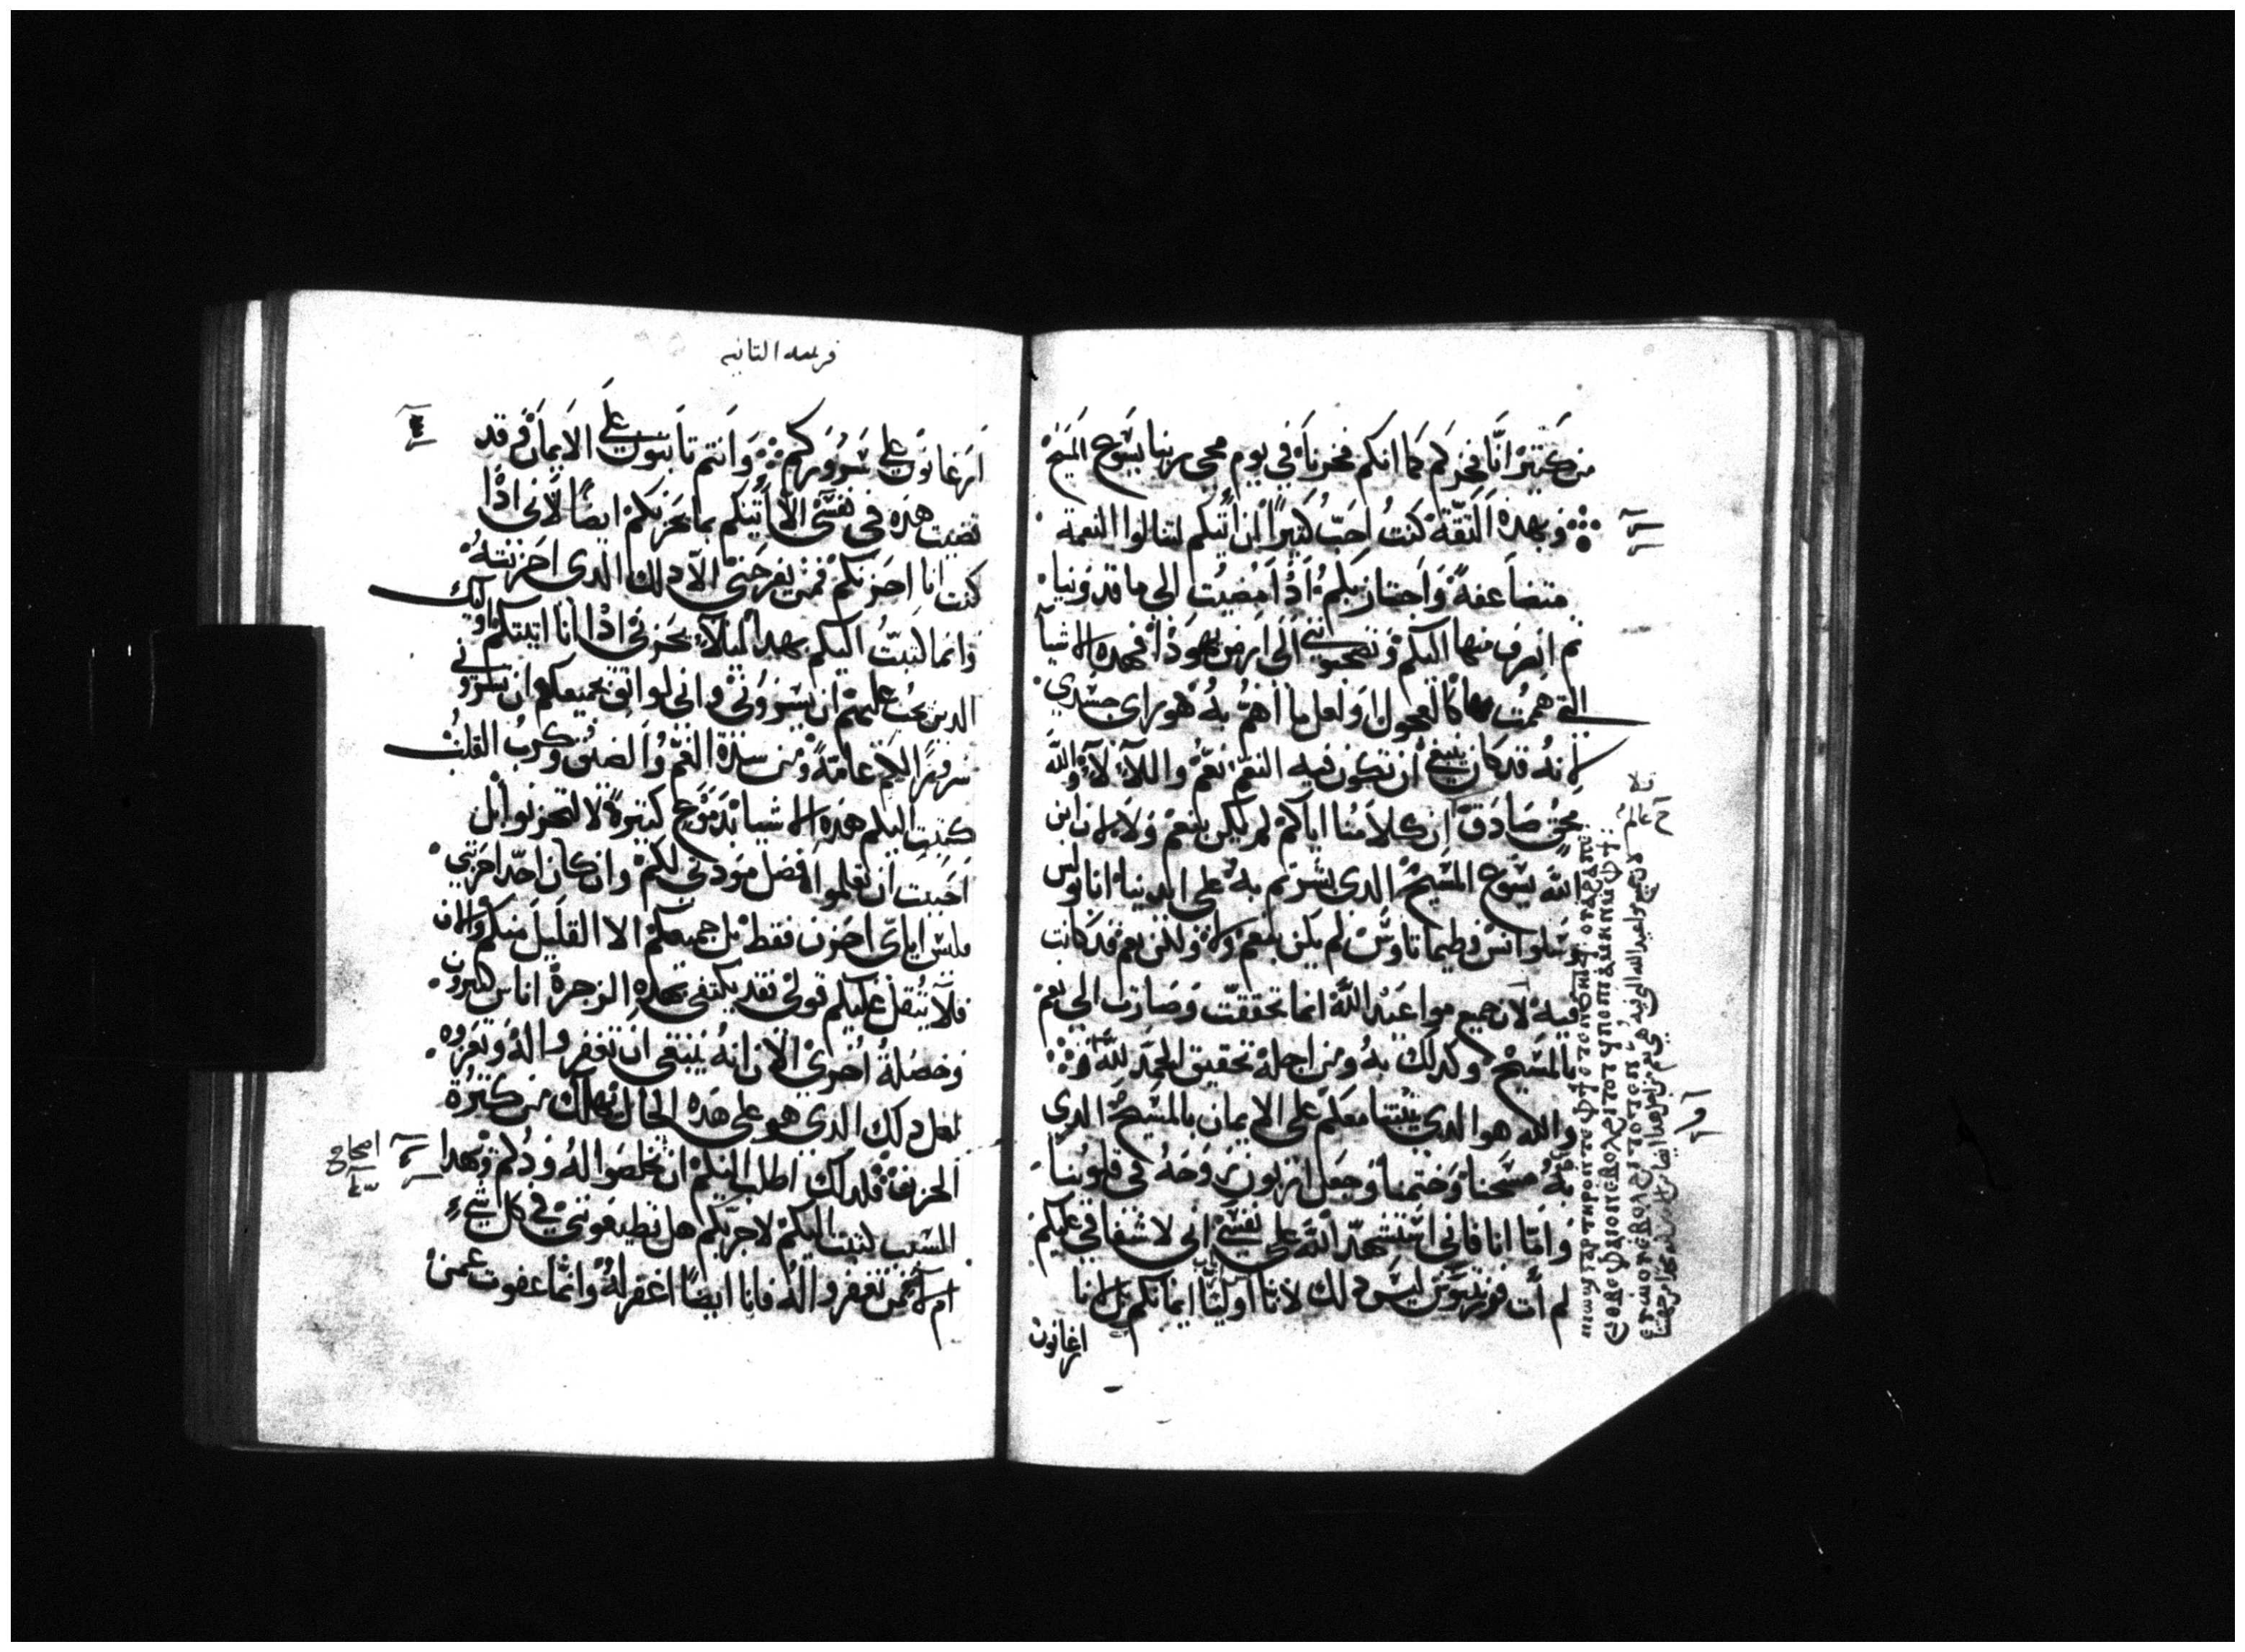 من كثير انّا فخركم كما انكم فخرنا في يوم مجى ربنا يسوع المسيح
وبهده الثقة كنت احب كثيرا ان اتيكم لتنالوا النعمة
متضاعفة واجتاز بكم اذ امضيت الى ماقدونيا
ثم انصرف منها اليكم وتصحبونني الى ارض يهودا فهده الاشيا
التي هممت بها كالعجول او لعل ما اهم به هو راى جسدي
لانه قد كان ينبغي ان تكون فيه النعم نعم واللا لا والله
محق صادق ان كلامنا اياكم لم يكن بنعم ولا لان ابن
الله يسوع المسيح الدى بشرتم به على ايدينا انا بولس
وسلوانس وطيماتاوس لم يكن بنعم ولا ولكن نعم قد كانت
فيه لان جميع مواعيد الله انما تحققت وصارت الى نعم
بالمسيح وكدلك به ومن اجله تحقيق المجد لله
والله هو الدي يثبتنا معكم على الايمان بالمسيح الدي
به مسحنا وختمنا وجعل اربون روحه في قلوبنا
واما انا فاني استشهد الله على نفسي اني لاشفاقي عليكم
لم أت قورنتيوس ليس دلك لانا اوليا ايمانكم بل انا
اعانون
قرنتيه التانيه
على سروركم وانتم تابتون على الايمان قد
قضيت هده في نفسي الا اتيكم بما يحزنكم ايضا لاني ادا
كنت انا احزنكم فمن يفرحني الا دلك الدى احزنته
وانما كتبت اليكم بهدا ليلا يحزني ادا انا اتيتكم اوليك
الدين يجب عليهم ان يسروني واني لواثق بجميعكم ان سروري
سروركم عامة ومن شدة الغم والضيق وكرب القلب
كتبت اليكم هده الاشيا بدموع كثيرة لا لتحزنوا بل
احببت ان تعلموا افضل مودتي لكم وان كان احد احزنني
فليس اياى احزن فقط بل جميعكم الا القليل منكم والان
فلا يثقل عليكم قولي فقد يكتفي بهده الزجرة اناس كثيرون
وخصلة اخرى الان انه ينبغي ان تغفروا له وتعزوه
لعل دلك الدي هو على هده الحال يهلك من كثرة
الحزن فلدلك اطلب اليكم ان تخلصوا له ودكم وبهدا
السبب كتبت اليكم لاجربكم هل تطيعونني في كل شيء
ام لا فمن تغفروا له فانا ايضا اغفر له وانما عفوت عمن